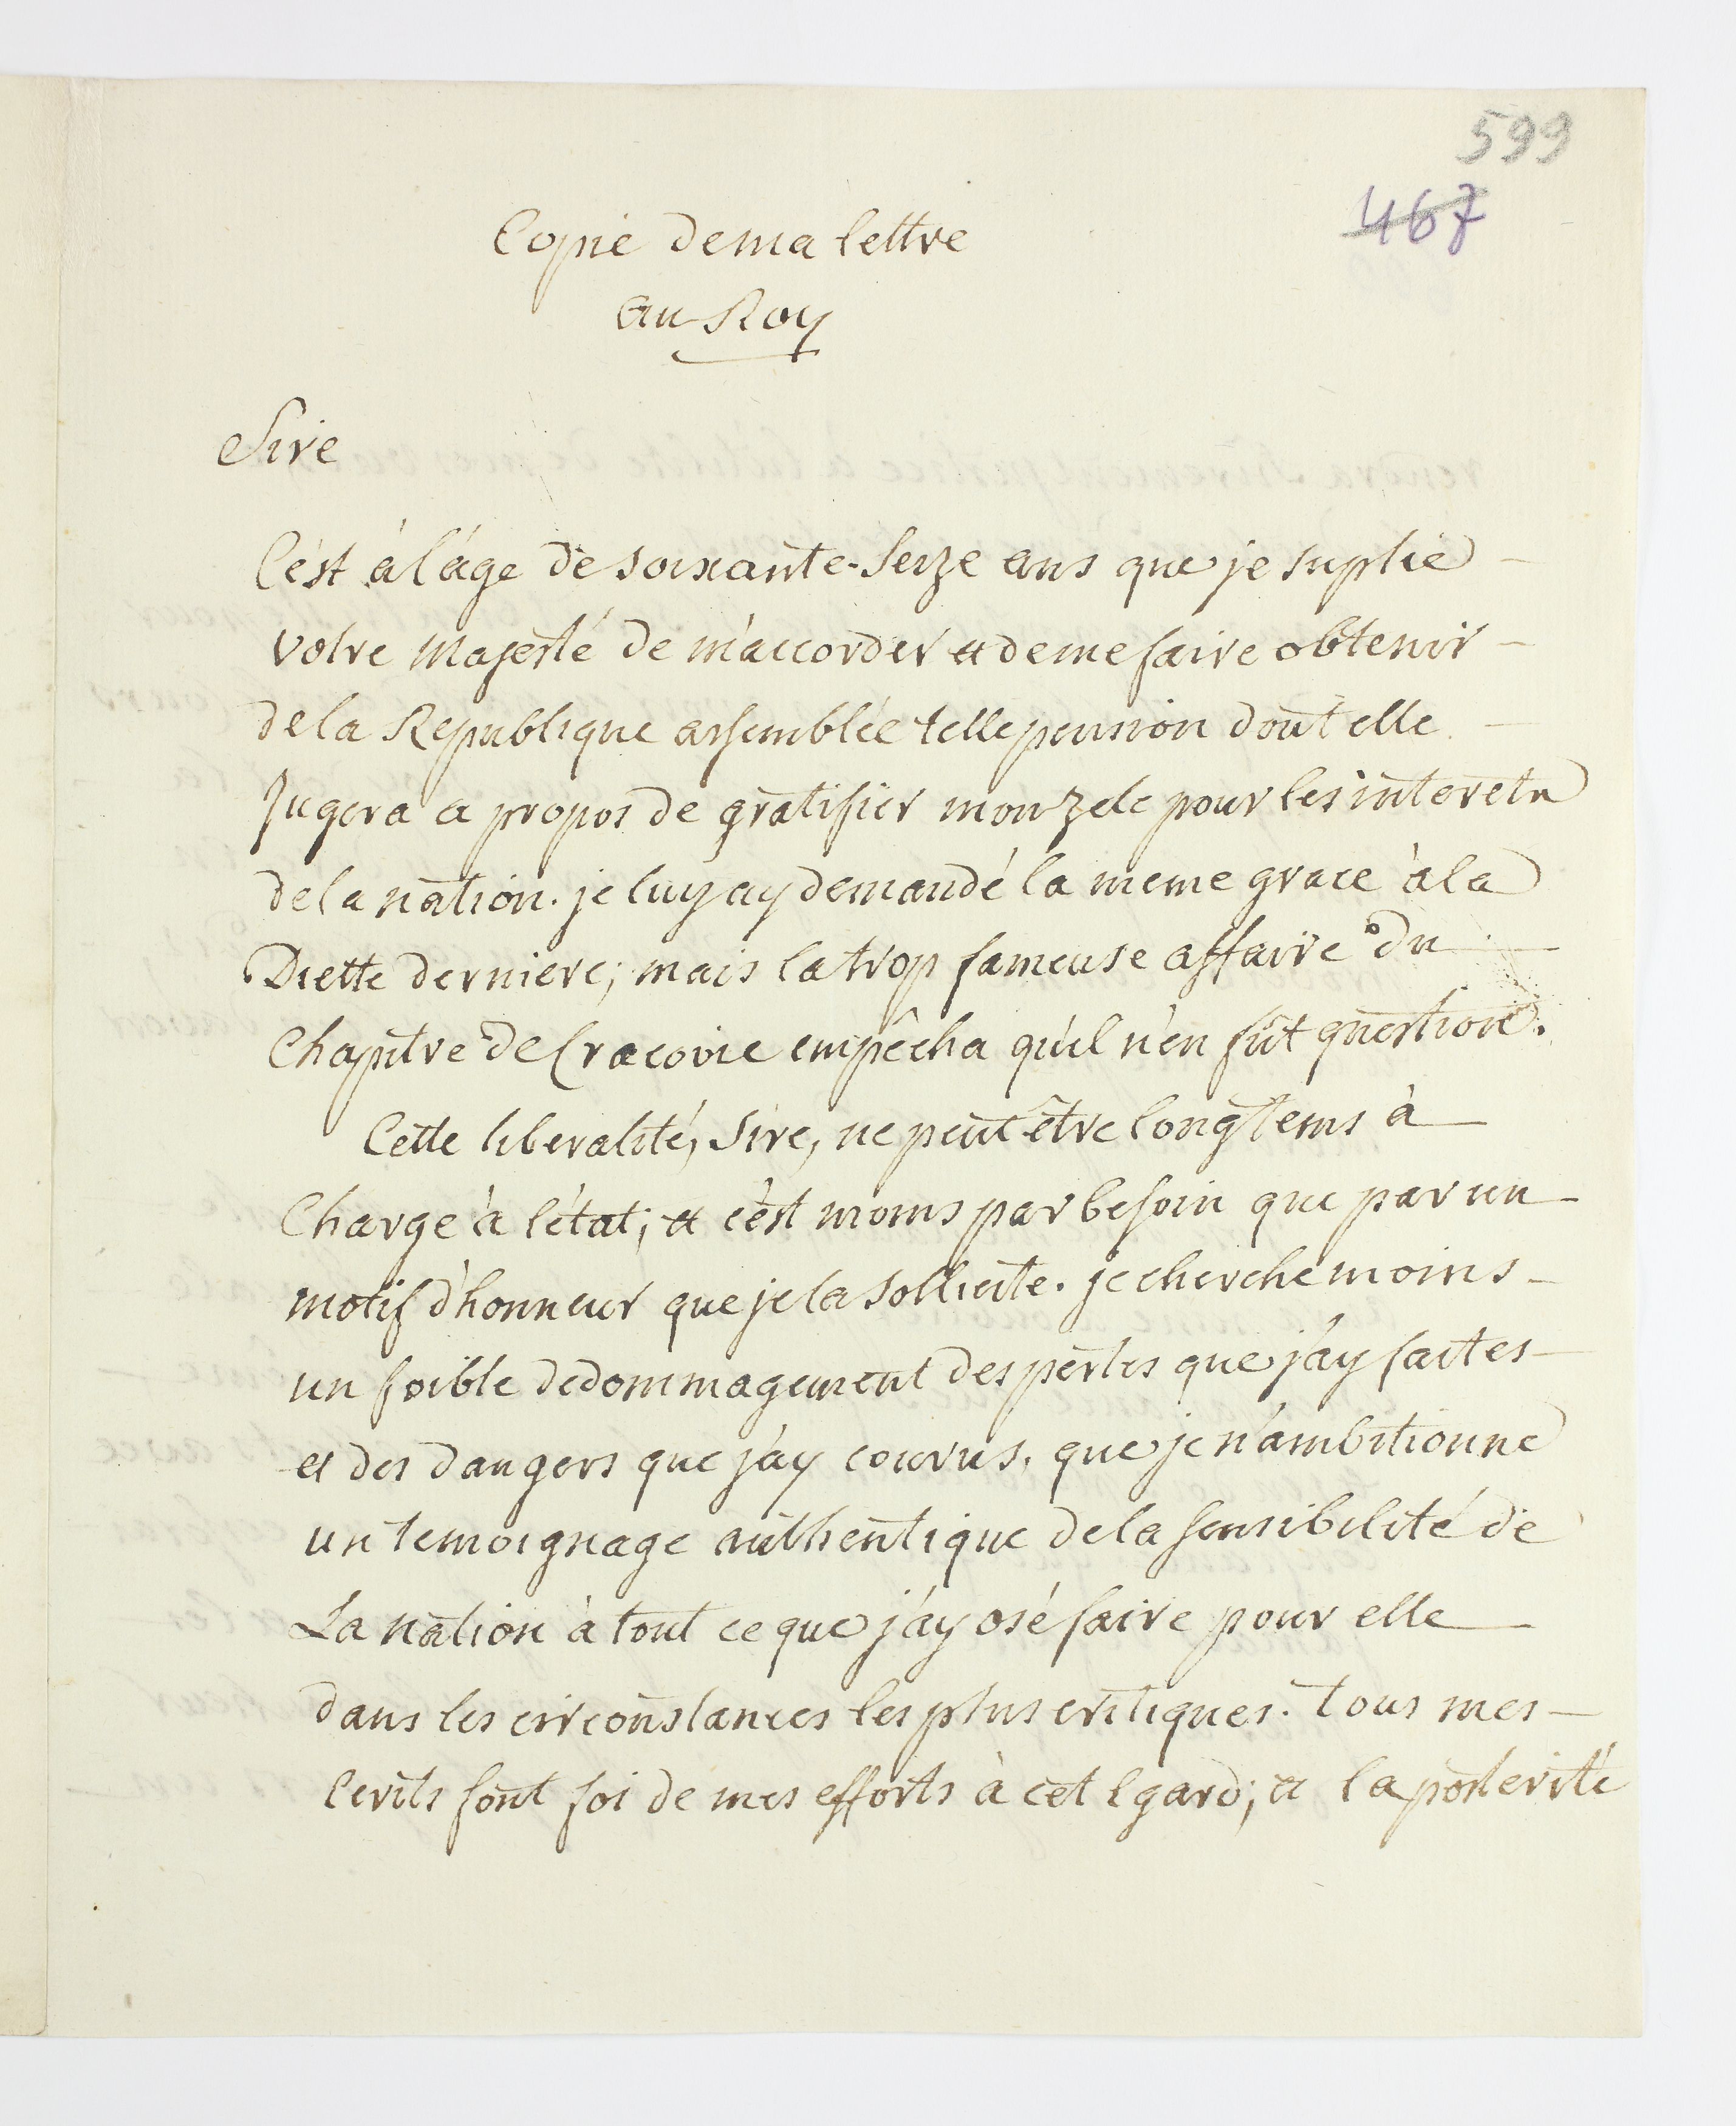 599
467
Copie de ma lettre
au Roy
Sire
C'est à l'âge de soixante-Seize ans que je suplie
votre Majesté de m'accorder et de me faire obtenir
de la Republique assemblée telle pension dont elle
Jugera a propos de gratifier mon zele pour les interets
de la nation. je luy ay demandé la meme grace à la
Diette derniere; mais la trop fameuse affaire du
Chapitre de Cracovie empêcha qu'il n'en fût question.
Cette liberalité, Sire, ne peut être longtems à
Charge à l'état; et c'est moins par besoin que par un
motif d'honneur que je la sollicite. je cherche moins
un foible dedommagement des pertes que j'ay faites
et des dangers que j'ay courus, que je n'ambitionne
un temoignage authentique de la sensibilité de
La nation à tout ce que j'ay osé faire pour elle
dans les circonstances les plus critiques. tous mes
Ecrits font foi de mes efforts à cet Egard; et la posterité